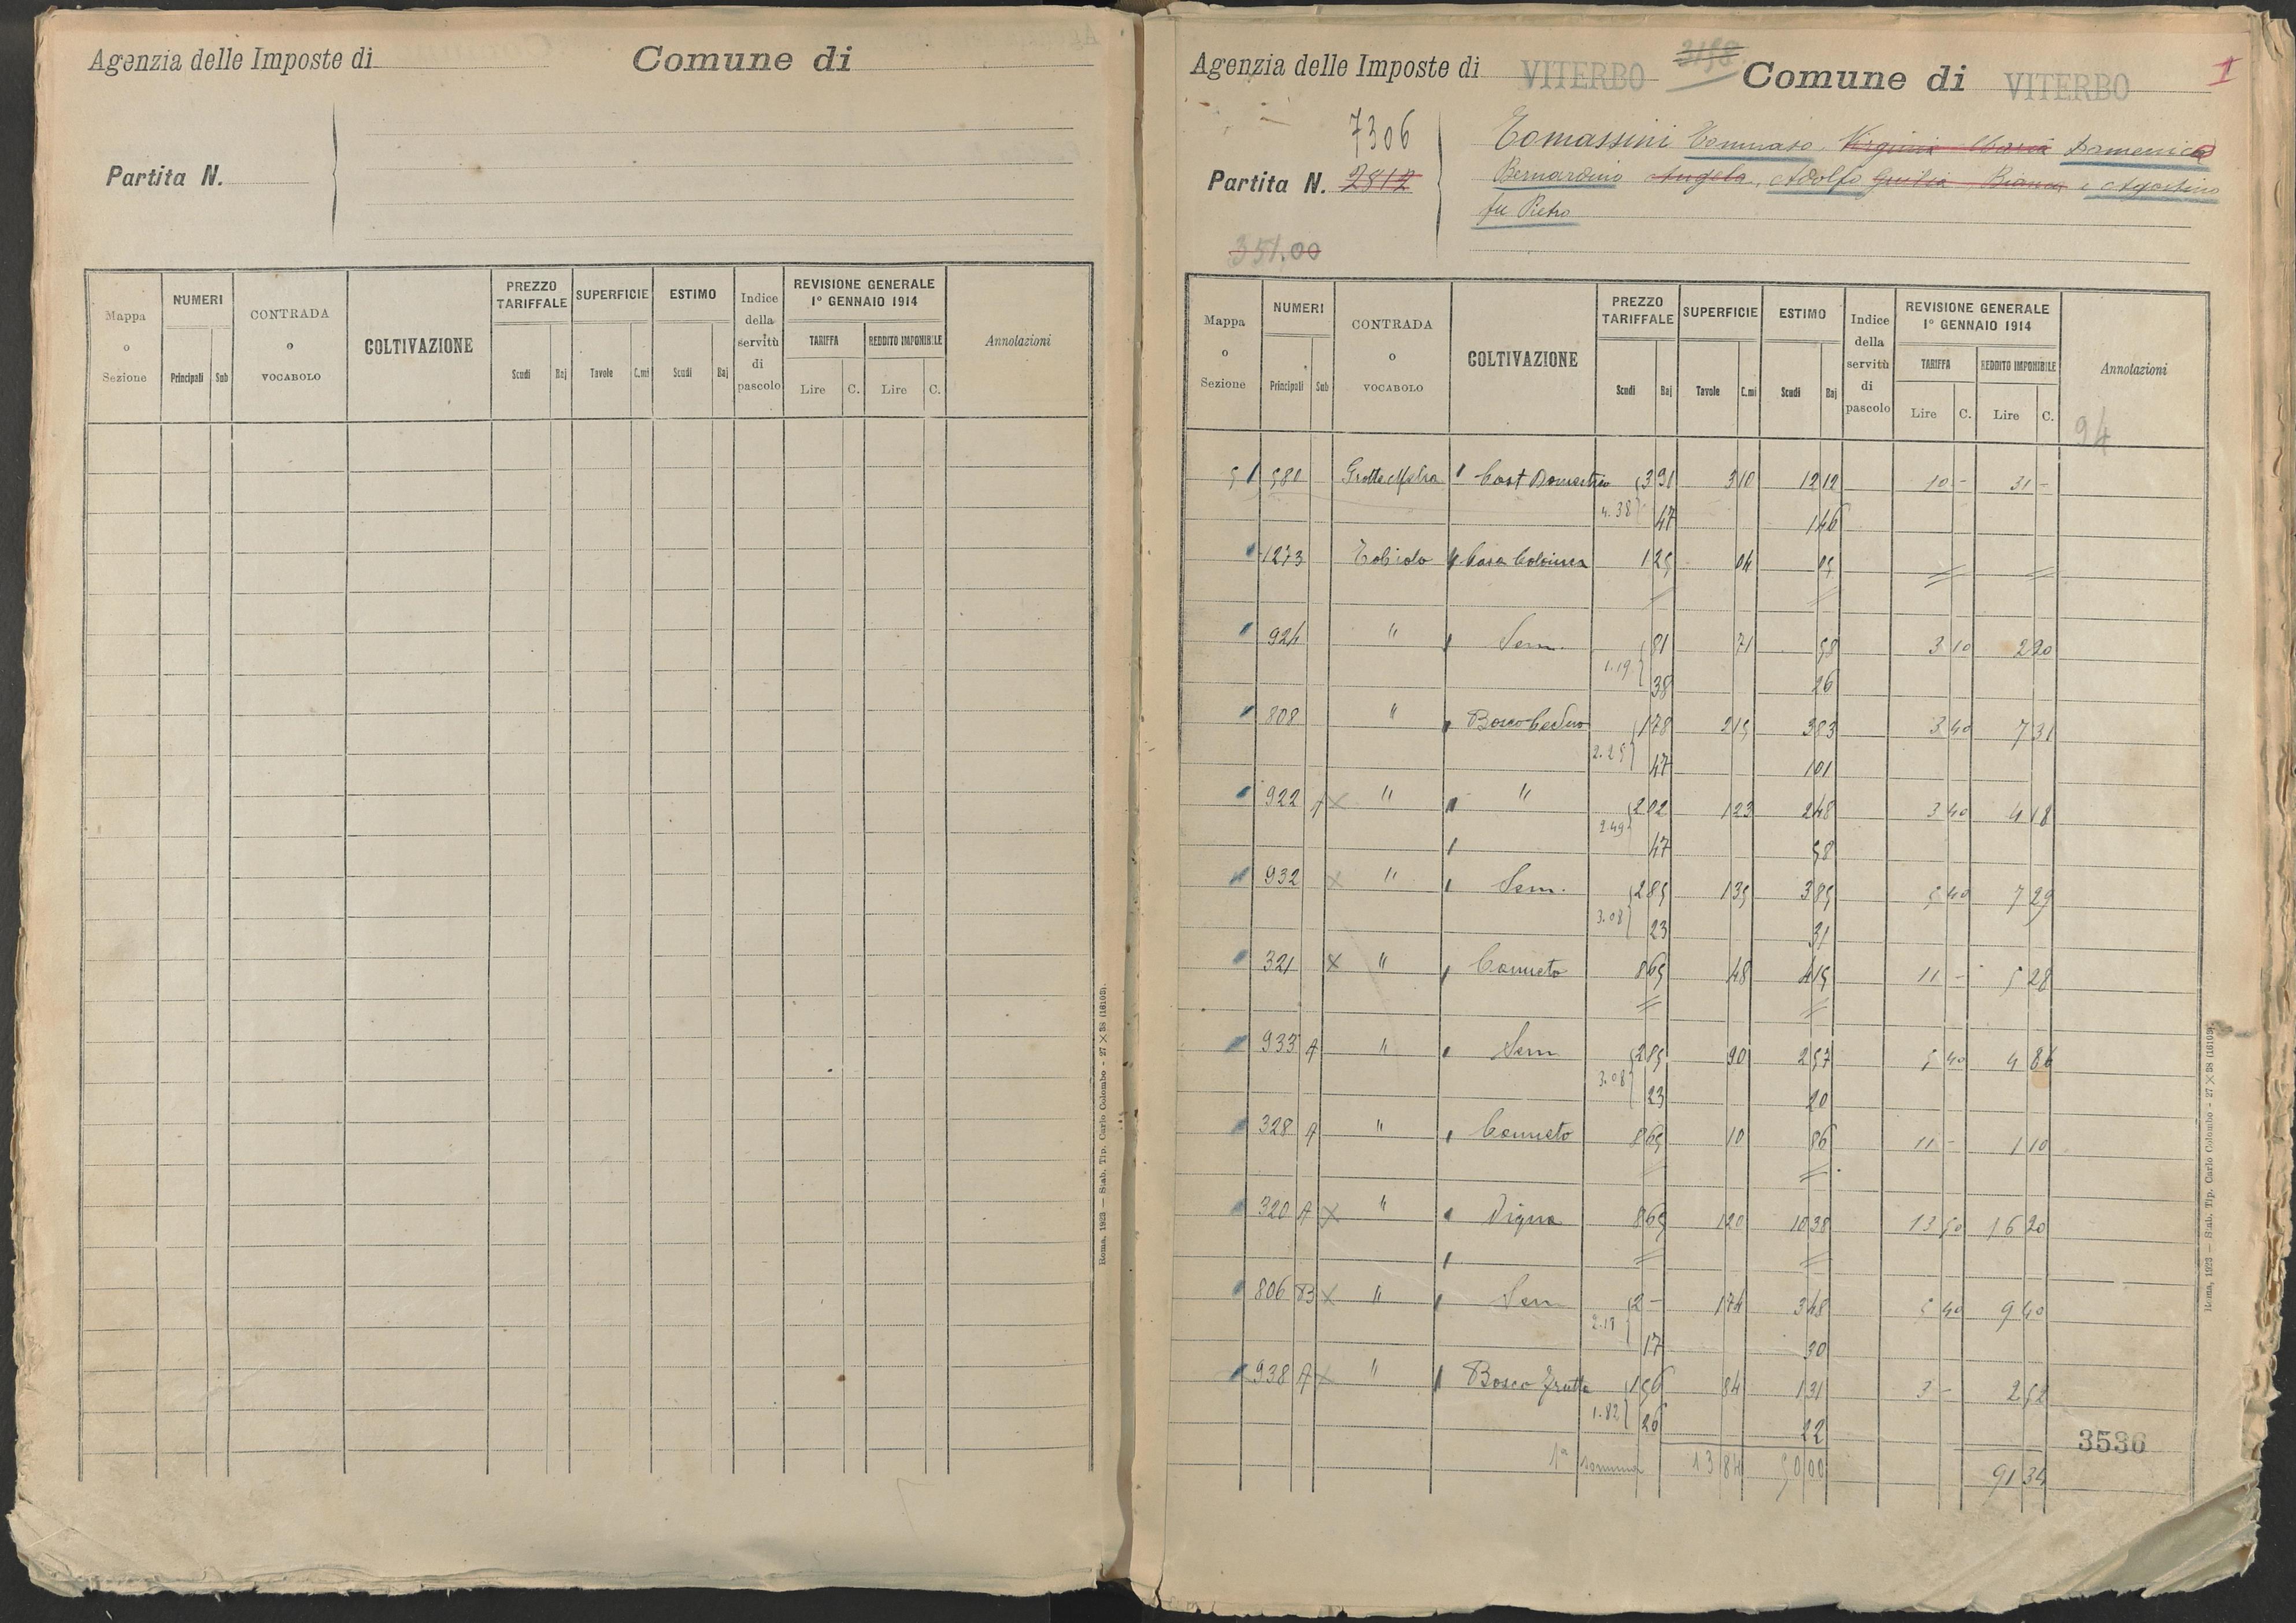 Agenzia delle Imposte di
Comune di
Partita N.
Mappa o Sezione
NUMERI
Principali Sub
CONTRADA o VOCABOLO
COLTIVAZIONE
PREZZO TARIFFALE
Scudi Baj
SUPERFICIE
Tavole C.mi
ESTIMO
Scudi Baj
Indice della servitù di pascolo
REVISIONE GENERALE
1° GENNAIO 1914
TARIFFA
Lire C.
REDDITO IMPONIBILE
Lire C.
Annotazioni
Roma, 1923 — Stab. Tip. Carlo Colombo - 27 × 38 (16103).
Agenzia delle Imposte di VITERBO
3158
Comune di VITERBO
1
7306
Partita N. 2812
Tomassini Tommaso, Virginia Maria Domenica
Bernardino Angela, Adolfo Giulia Bianca e Agostino
fu Pietro
351.00
Mappa o Sezione
NUMERI
Principali Sub
CONTRADA o VOCABOLO
COLTIVAZIONE
PREZZO TARIFFALE
Scudi Baj
SUPERFICIE
Tavole C.mi
ESTIMO
Scudi Baj
Indice della servitù di pascolo
REVISIONE GENERALE
1° GENNAIO 1914
TARIFFA
Lire C.
REDDITO IMPONIBILE
Lire C.
Annotazioni
94
51 580 Cast Domestico 3 91 3 10 12 12 10 - 31 -
4.38 47 1 46
1273 Casa Colonica 1 25 04 05
924 " Sem. 81 71 58 3 10 2 20
1.19 38 26
808 " Bosco Ceduo 1 78 2 15 3 83 3 40 7 31
2.25 47 1 01
922 A × " " 2 02 1 23 2 48 3 40 4 18
2.49 47 58
932 × " Sem. 2 85 1 35 3 85 5 40 7 29
3.08 23 31
321 × " Canneto 8 65 48 4 15 11 - 5 28
933 A " Sem 2 85 90 2 57 5 40 4 86
3.08 23 20
328 A " Canneto 8 65 10 86 11 - 1 10
320 A × " Vigna 8 65 1 20 10 38 13 50 16 20
806 B × " Sem 2 - 1 74 3 48 5 40 9 40
2.17 17 30
938 A × " Bosco Frutto 1 56 84 1 31 3 - 2 52
1.82 26 22
1ª somma 13 84 50 00 91 34
3536
Roma, 1923 — Stab. Tip. Carlo Colombo - 27 × 38 (16103).